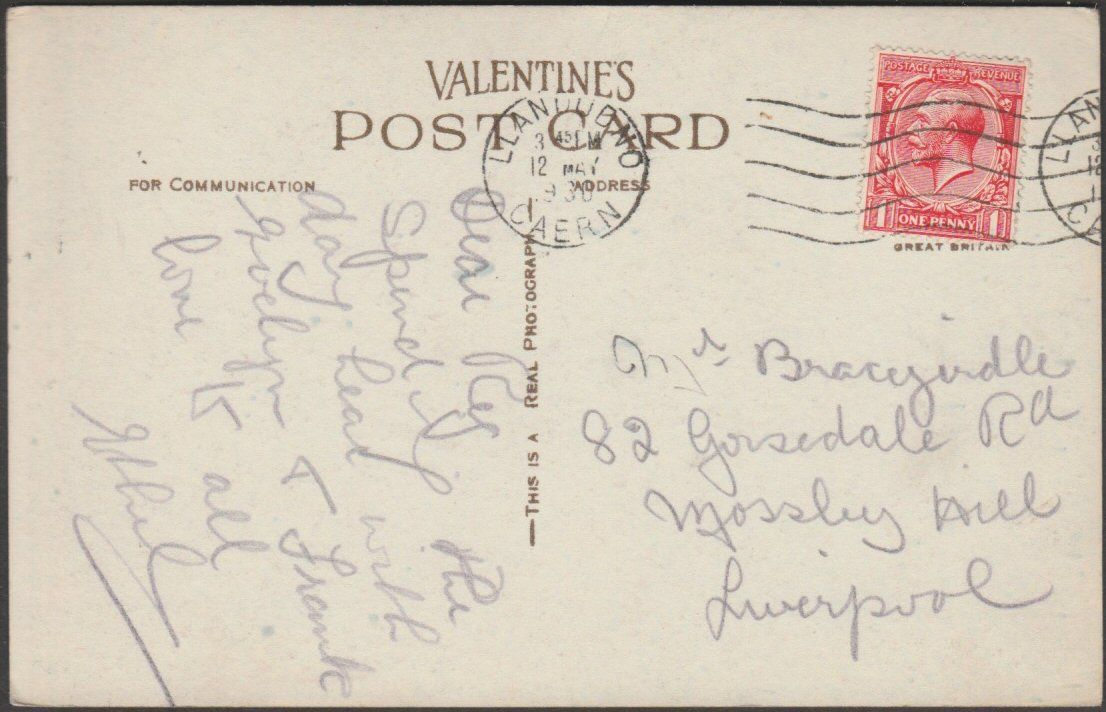 VALENTINE'S
POST CARD
FOR COMMUNICATION
ADDRESS
THIS IS A REAL PHOTOGRAPH
LLANDUDNO
3 45 PM
12 MAY
1930
CAERN
POSTAGE REVENUE
1 ONE PENNY 1
GREAT BRITAIN
LLAN
3
12
1
CA
Mrs Bracegirdle
82 Gorsedale Rd
Mossley Hill
Liverpool
Dear the
Spending
day here with
Evelyn & Frank
love to all
Ethel